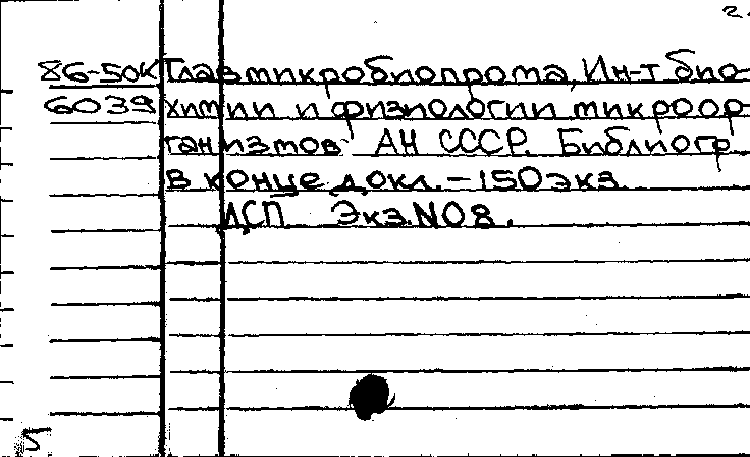 2.
86-50К Главмикробиопрома, Ин-т био-
6039 химии и физиологии микроор-
ганизмов АН СССР. Библиогр.
в конце докл. – 150 экз.
ДСП. Экз. N08.